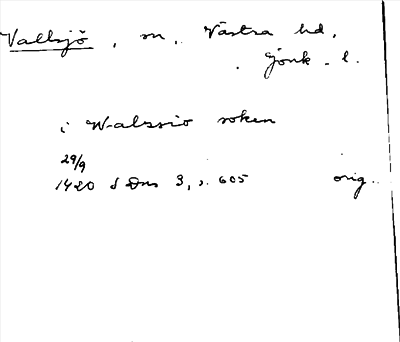 Vallsjö, sn, Västra hd,
Jönk. l.
i Walssio soken
29/9
1420 SDns 3, s. 605 orig.